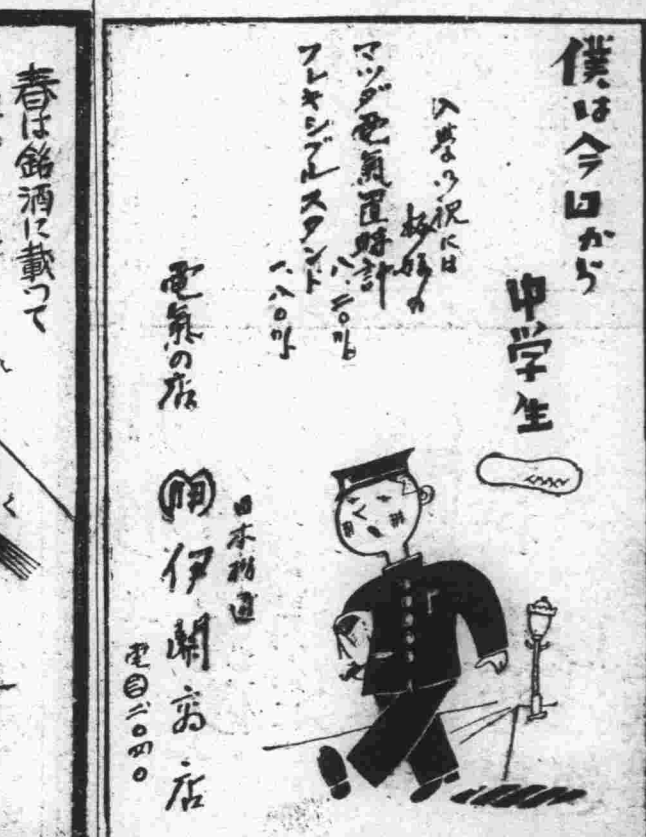 僕は今日から
中学生
入学の祝には
マツダ電氣置時計
八.二〇ゟ
フレキシブルスタンド
一.八〇ゟ
電氣の店
日本橋通
伊蘭商店
電自二〇四〇
春は銘酒に載つて
く